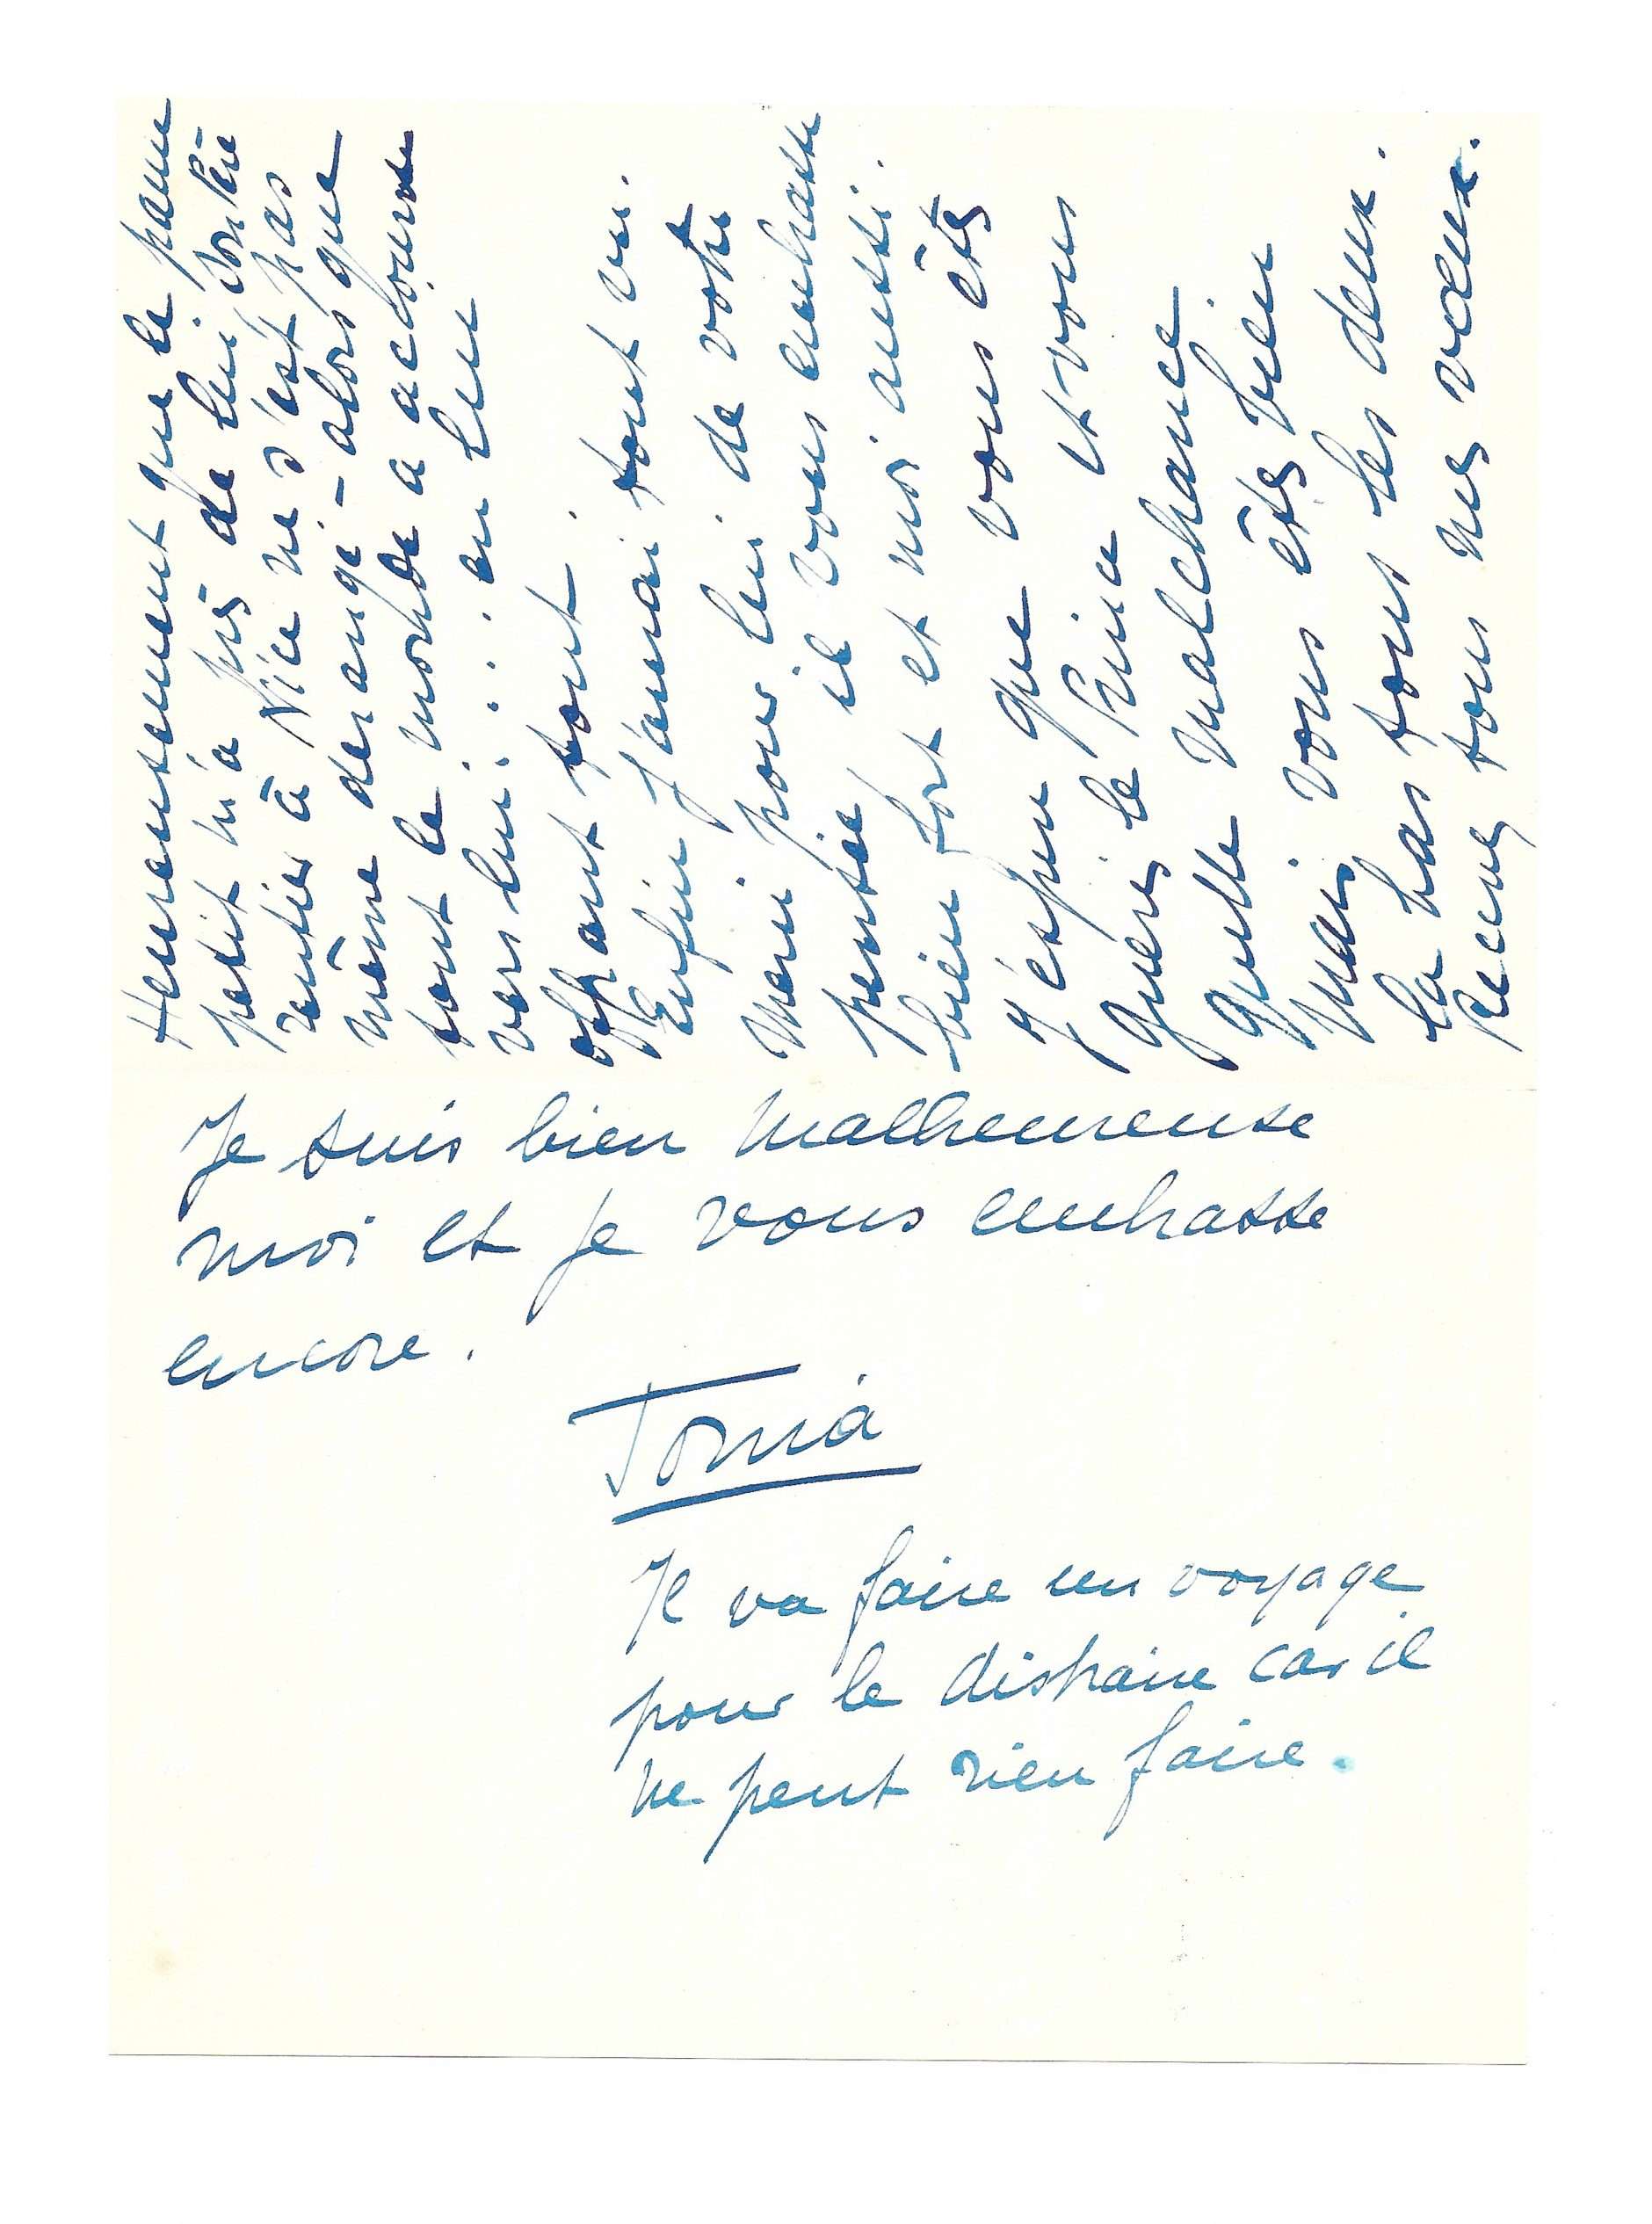 Heureusement que le pauvre
petit m'a près de lui Sorbier
rentier à Nice ne s'est pas
même dérangé - alors que
tout le monde a accouru
vers lui . . . . en lui
offrant tout .
Enfin j'aurai tout vu.
Merci pour lui de votre
pensée il vous embrasse
bien fort et moi aussi.
J'espère que vous êtes
guéris le Prince et vous
quelle malchance.
Mais vous êtes bien
là bas tous les deux .
Recevez tous nos vœux.
Je suis bien malheureuse
moi et je vous embrasse
encore .
Tonia
Il va faire un voyage
pour le distraire car il
ne peut rien faire .